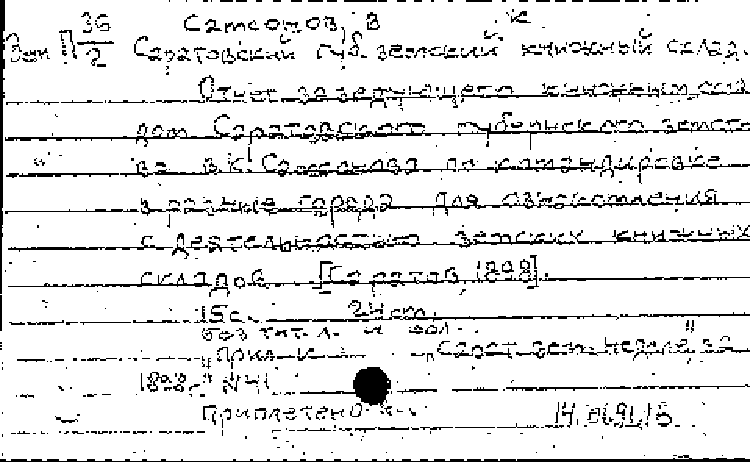 Самсонов, В К
Зем П 36/2 Саратовский губ. земский книжный склад.
Отчет заведующего книжным скла
дом Саратовского губернского земст
ва В.К. Самсонова по командировке
в разные города для ознакомления
с деятельностью земских книжных
складов. [Саратов, 1898].
15 с. 24 cm.
без тит. л. и обл.
"Прил. к "Сарат. зем. неделе" за
1898 г." №41
Приплетено к